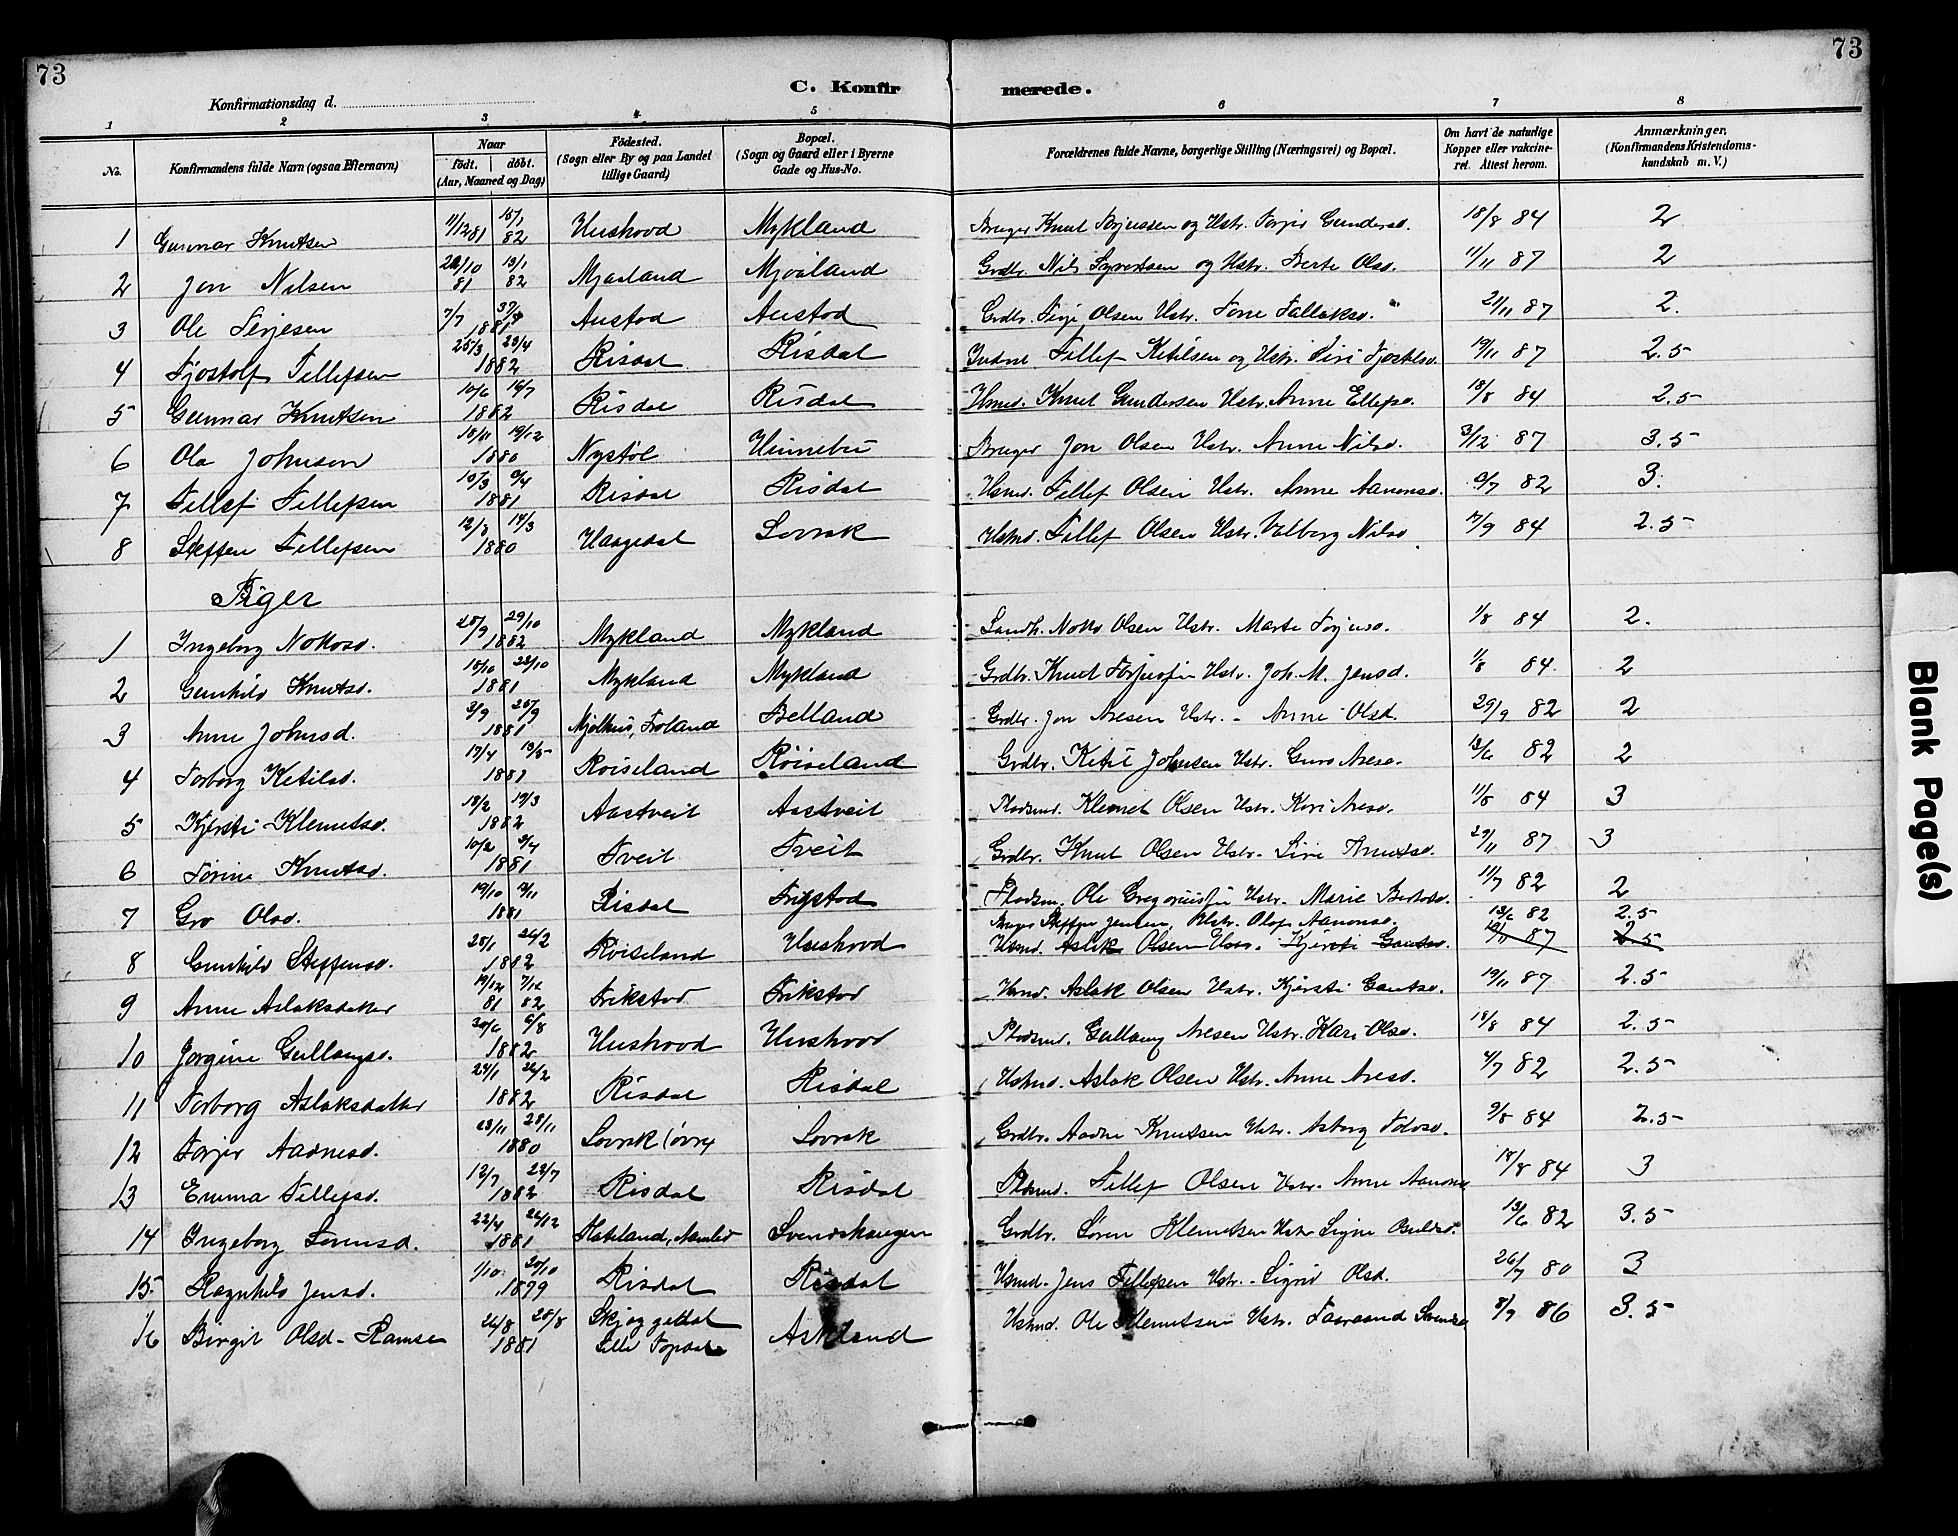 73
73
C. Konfirmerede.
Konfirmationsdag d.
1 2 3 4 5 6 7 8
No.
Konfirmandens fulde Navn (ogsaa Efternavn)
Naar
født. døbt.
(Aar, Maaned og Dag)
Fødested.
(Sogn eller By og paa Landet
tillige Gaard)
Bopæl.
(Sogn og Gaard eller i Byerne
Gade og Hus-No.
Forældrenes fulde Navne, borgerlige Stilling (Næringsvei) og Bopæl.
Om havt de naturlige
Kopper eller vakcine-
ret. Attest herom.
Anmærkninger.
(Konfirmandens Kristendoms-
kundskab m. V.)
1 Gunnar Knutsen 11/12 81 15/1 82 Hushovd Mykland Bruger Knut Terjussen og Hstr. Torjer Gundersd. 18/8 84 2
2 Jon Nilsen 81 13/1 82 Mjaaland Mjaaland Grdbr. Nils Syvertsen og Hstr. Berte Olsd. 11/11 87 2
3 Ole Terjesen 7/7 1881 Austad Austad Grdbr. Terje Olsen Hstr. Tone Tallaksd. 21/11 87 2.
4 Fjostolf Tellefsen 25/3 23/4 1882 Risdal Risdal Tellef Ketilsen og Hstr. Siri 19/11 87 2.5
5 Gunnar Knutsen 10/6 16/7 1882 Risdal Risdal Hsmd. Knut Gundersen Hstr. Anne Ellefsd. 18/8 84 2.5
6 Ola Johnsen 18/11 19/12 1880 Nystøl Hinnebu Bruger Jon Olsen Hstr. Anne Nilsd. 3/12 87 3.5
7 Tellef Tellefsen 10/3 1881 Risdal Risdal Hsmd. Tellef Olsen Hstr. Anne Aanonsd. 9/7 82 3.
8 Steffen Tellefsen 12/3 14/3 1880 Haagedal Lovrak Hsmd. Tellef Olsen Hstr. Valborg Nilsd. 17/9 84 2.5
Piger
1 Ingeborg Nottosd. 28/9 29/10 1882 Mykland Mykland Landh. Notto Olsen Hstr. Marte Terjusd. 1/8 84 2.
2 Gunhild Knutsd. 18/10 23/10 1881 Mykland Mykland Grdbr. Knut Hstr. Joh. M. Jensd. 1/8 84 2
3 Anne Johnsd. 3/9 25/9 1881 Mjølhus, Froland Belland Grdbr. Jon Aresen Hstr. - Anne Olsd. 29/9 82 2
4 Torborg Ketilsd. 17/4 15/5 1881 Røiseland Røiseland Grdbr. Ketil Johnsen Hstr. Guro Aresd. 13/6 82 2
5 Kjersti Klemetsd. 18/2 19/3 1882 Aastveit Aastveit Pladsmd. Klemet Olsen Hstr. Kari Aresd. 11/8 84 3
6 Tørine Knutsd. 10/2 3/4 1881 Tveit Tveit Grdbr. Knut Olsen Hstr. Siri Knutsd. 29/11 87 3
7 Gro Olsd. 19/10 13/11 1881 Risdal Frigstad Pladsm. Ole Hstr. Marie 11/7 82 2
8 Gunhild Steffensd. 25/1 26/2 1882 Røiseland Hushovd Bruger Steffen Jensen, Hstr. Olaf Aanonsd. 13/6 82 2.5
Hsmd. Aslak Olsen Hstr. Kjersti Gautsd. 19/11 87 2.5
9 Anne Aslaksdatter 19/12 81 82 Frikstad Frikstad Hsmd. Aslak Olsen Hstr. Kjersti Gautsd. 19/11 87 2.5
10 Jørgine Gullaugsd. 30/6 6/8 1882 Hushovd Hushovd Pladsmd. Gullaug Aresen Hstr. Kari Olsd. 18/8 84 2.5
11 Torborg Aslaksdatter 24/1 26/2 1882 Risdal Risdal Hsmd. Aslak Olsen Hstr. Anne Aresd. 4/7 82 2.5
12 Torjer Aadnesd. 23/11 28/11 1880 Lovrak (øvre) Lovrak Grdbr. Aadne Knutsen Hstr. Asborg Tovsd. 9/8 84 2.5
13 Emma Tellefsd. 12/7 23/7 1882 Risdal Risdal Pladsmd. Tellef Olsen Hstr. Anne Aanonsd. 18/8 84 3
14 Ingeborg Sørensd. 22/4 26/12 1881 Hateland, Aamland Svendshaugen Grdbr. Søren Klemetsen Hstr. Signe 13/6 82 3.5
15 Ragnhild Jensd. 1/10 20/10 1879 Risdal Risdal Hsmd. Jens Tellefsen Hstr. - Sigrid Olsd. 26/7 80 3
16 Birgit Olsd - Ramse 26/8 28/8 1881 Skjeggedal Lille Topdal Askland Hsmd. Ole Klemetsen Hstr. Taarand 8/9 86 3.5
Blank Page(s)